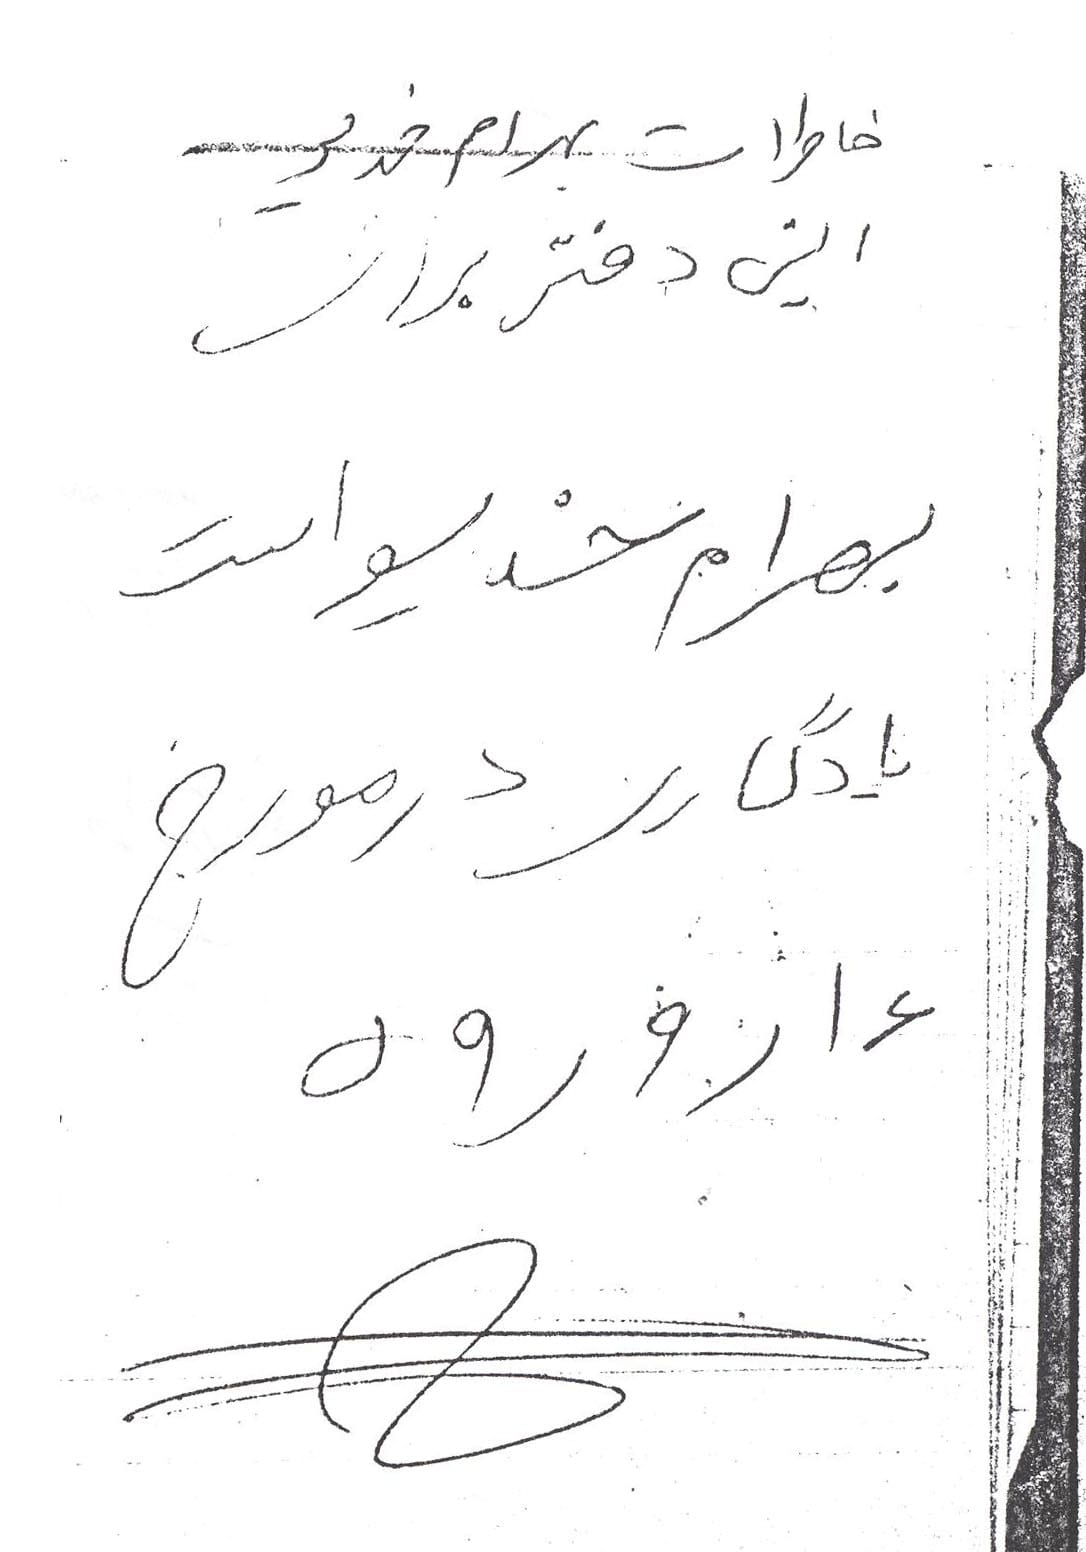 خاطرات بهرام خدیو
این دفتر برای
بهرام خدیو است
یادگاری در مورخ